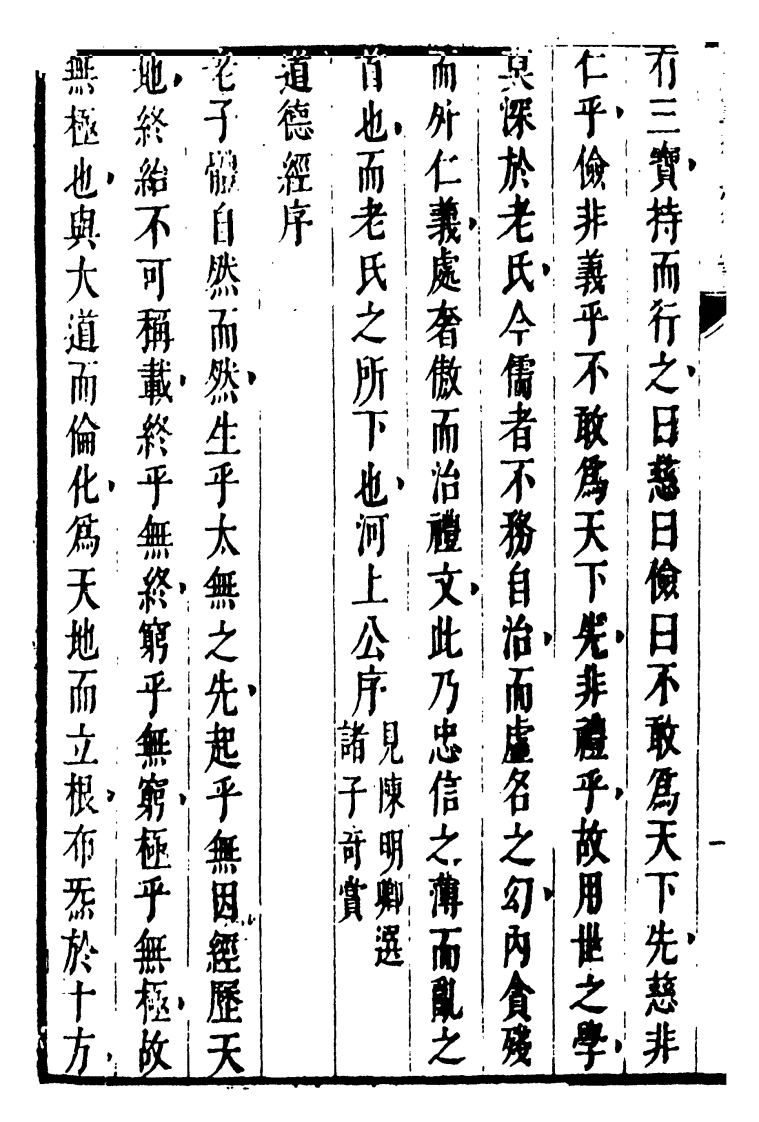 有三寶持而行之曰慈曰儉曰不敢爲天下先慈非
仁乎儉非義乎不敢爲天下先非禮乎故用世之學
莫深於老氏今儒者不務自治而虛名之幻內貪殘
而外仁義處奢傲而治禮文此乃忠信之薄而亂之
首也而老氏之所下也河上公序
見陳明卿選
諸子奇賞
道德經序
老子體自然而然生乎太無之先起乎無因經歷天
地終始不可稱載終乎無終窮乎無窮極乎無極故
無極也與大道而倫化爲天地而立根布炁於十方